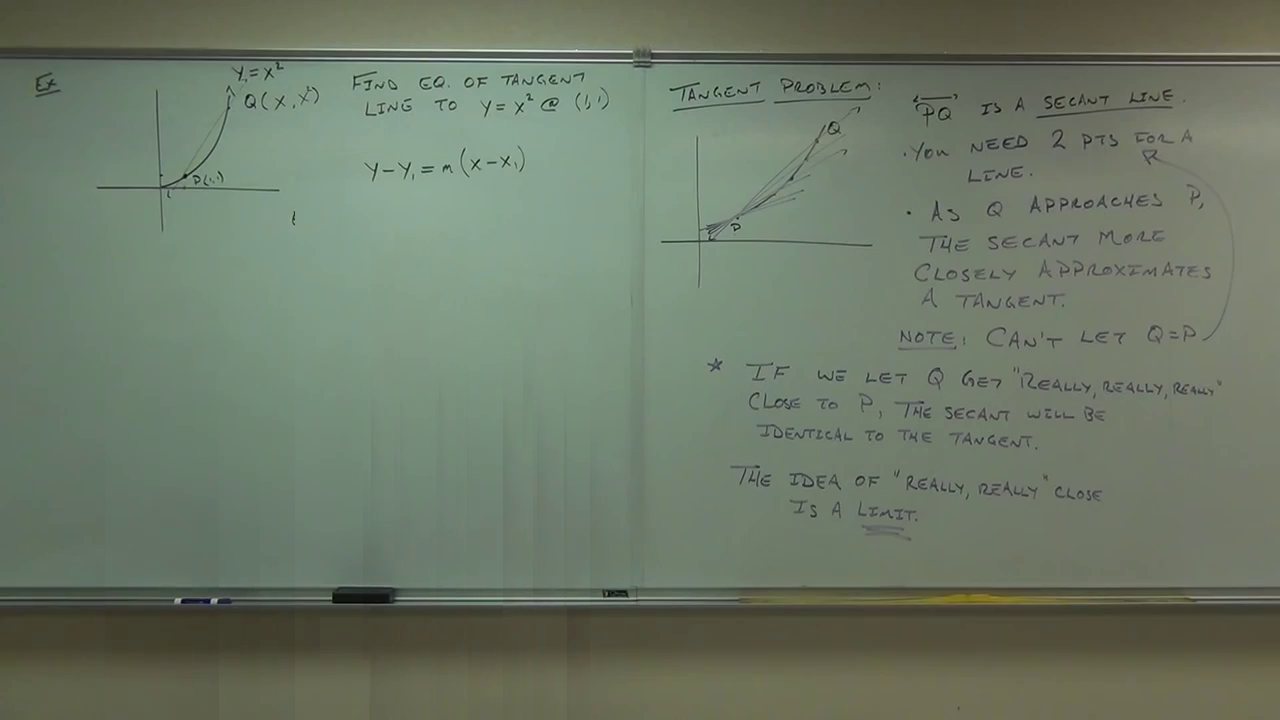 Ex
Y=X²
Q(X,X²)
P(1,1)
FIND EQ. OF TANGENT
LINE TO Y=X² @ (1,1)
Y-Y₁=m(X-X₁)
TANGENT PROBLEM:
Q
P
"PQ" IS A SECANT LINE.
· YOU NEED 2 PTS FOR A
LINE.
· AS Q APPROACHES P,
THE SECANT MORE
CLOSELY APPROXIMATES
A TANGENT.
NOTE: CAN'T LET Q=P
* IF WE LET Q GET "REALLY, REALLY, REALLY"
CLOSE TO P, THE SECANT WILL BE
IDENTICAL TO THE TANGENT.
THE IDEA OF "REALLY, REALLY" CLOSE
IS A LIMIT.